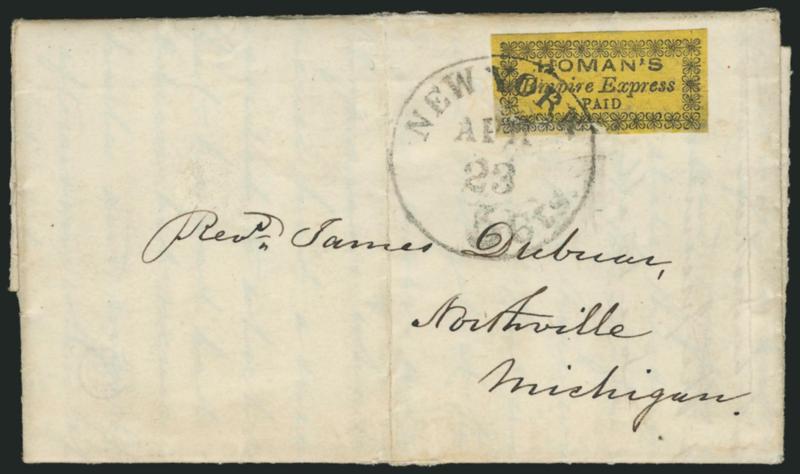 HOMAN'S
Empire Express
PAID
NEW YORK
APR
23
5 Cts.
Revd. James Dubuar,
Northville
Michigan.